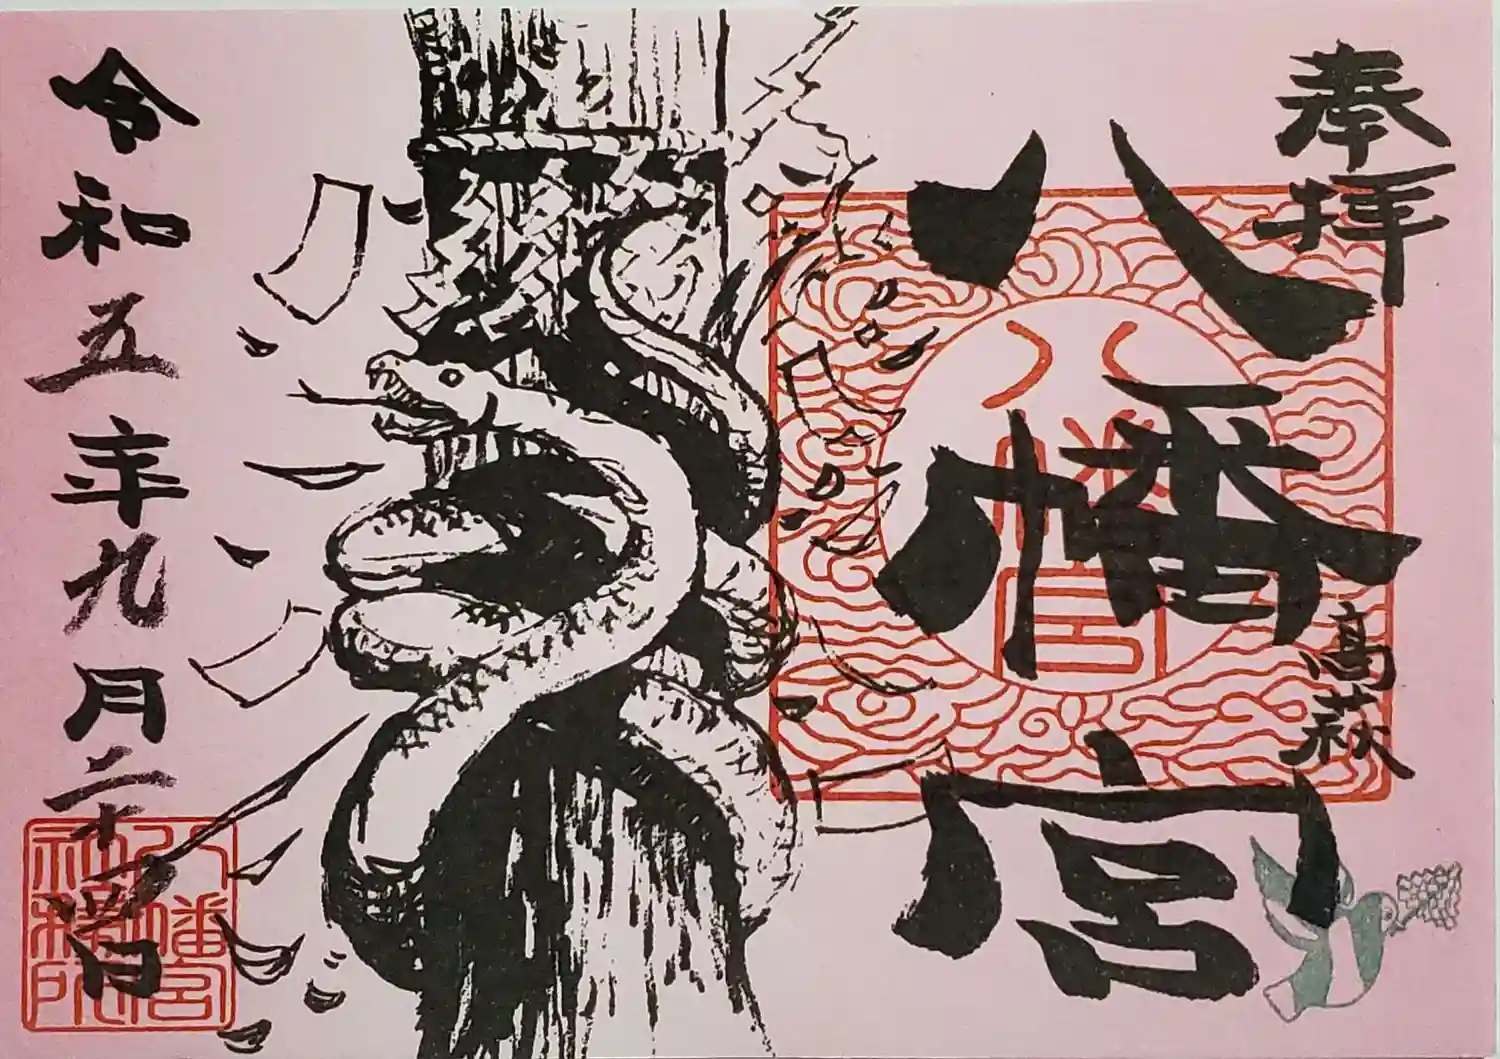 奉拝
八幡宮
高萩
八幡宮
令和五年九月二十四日
八幡宮
社務所